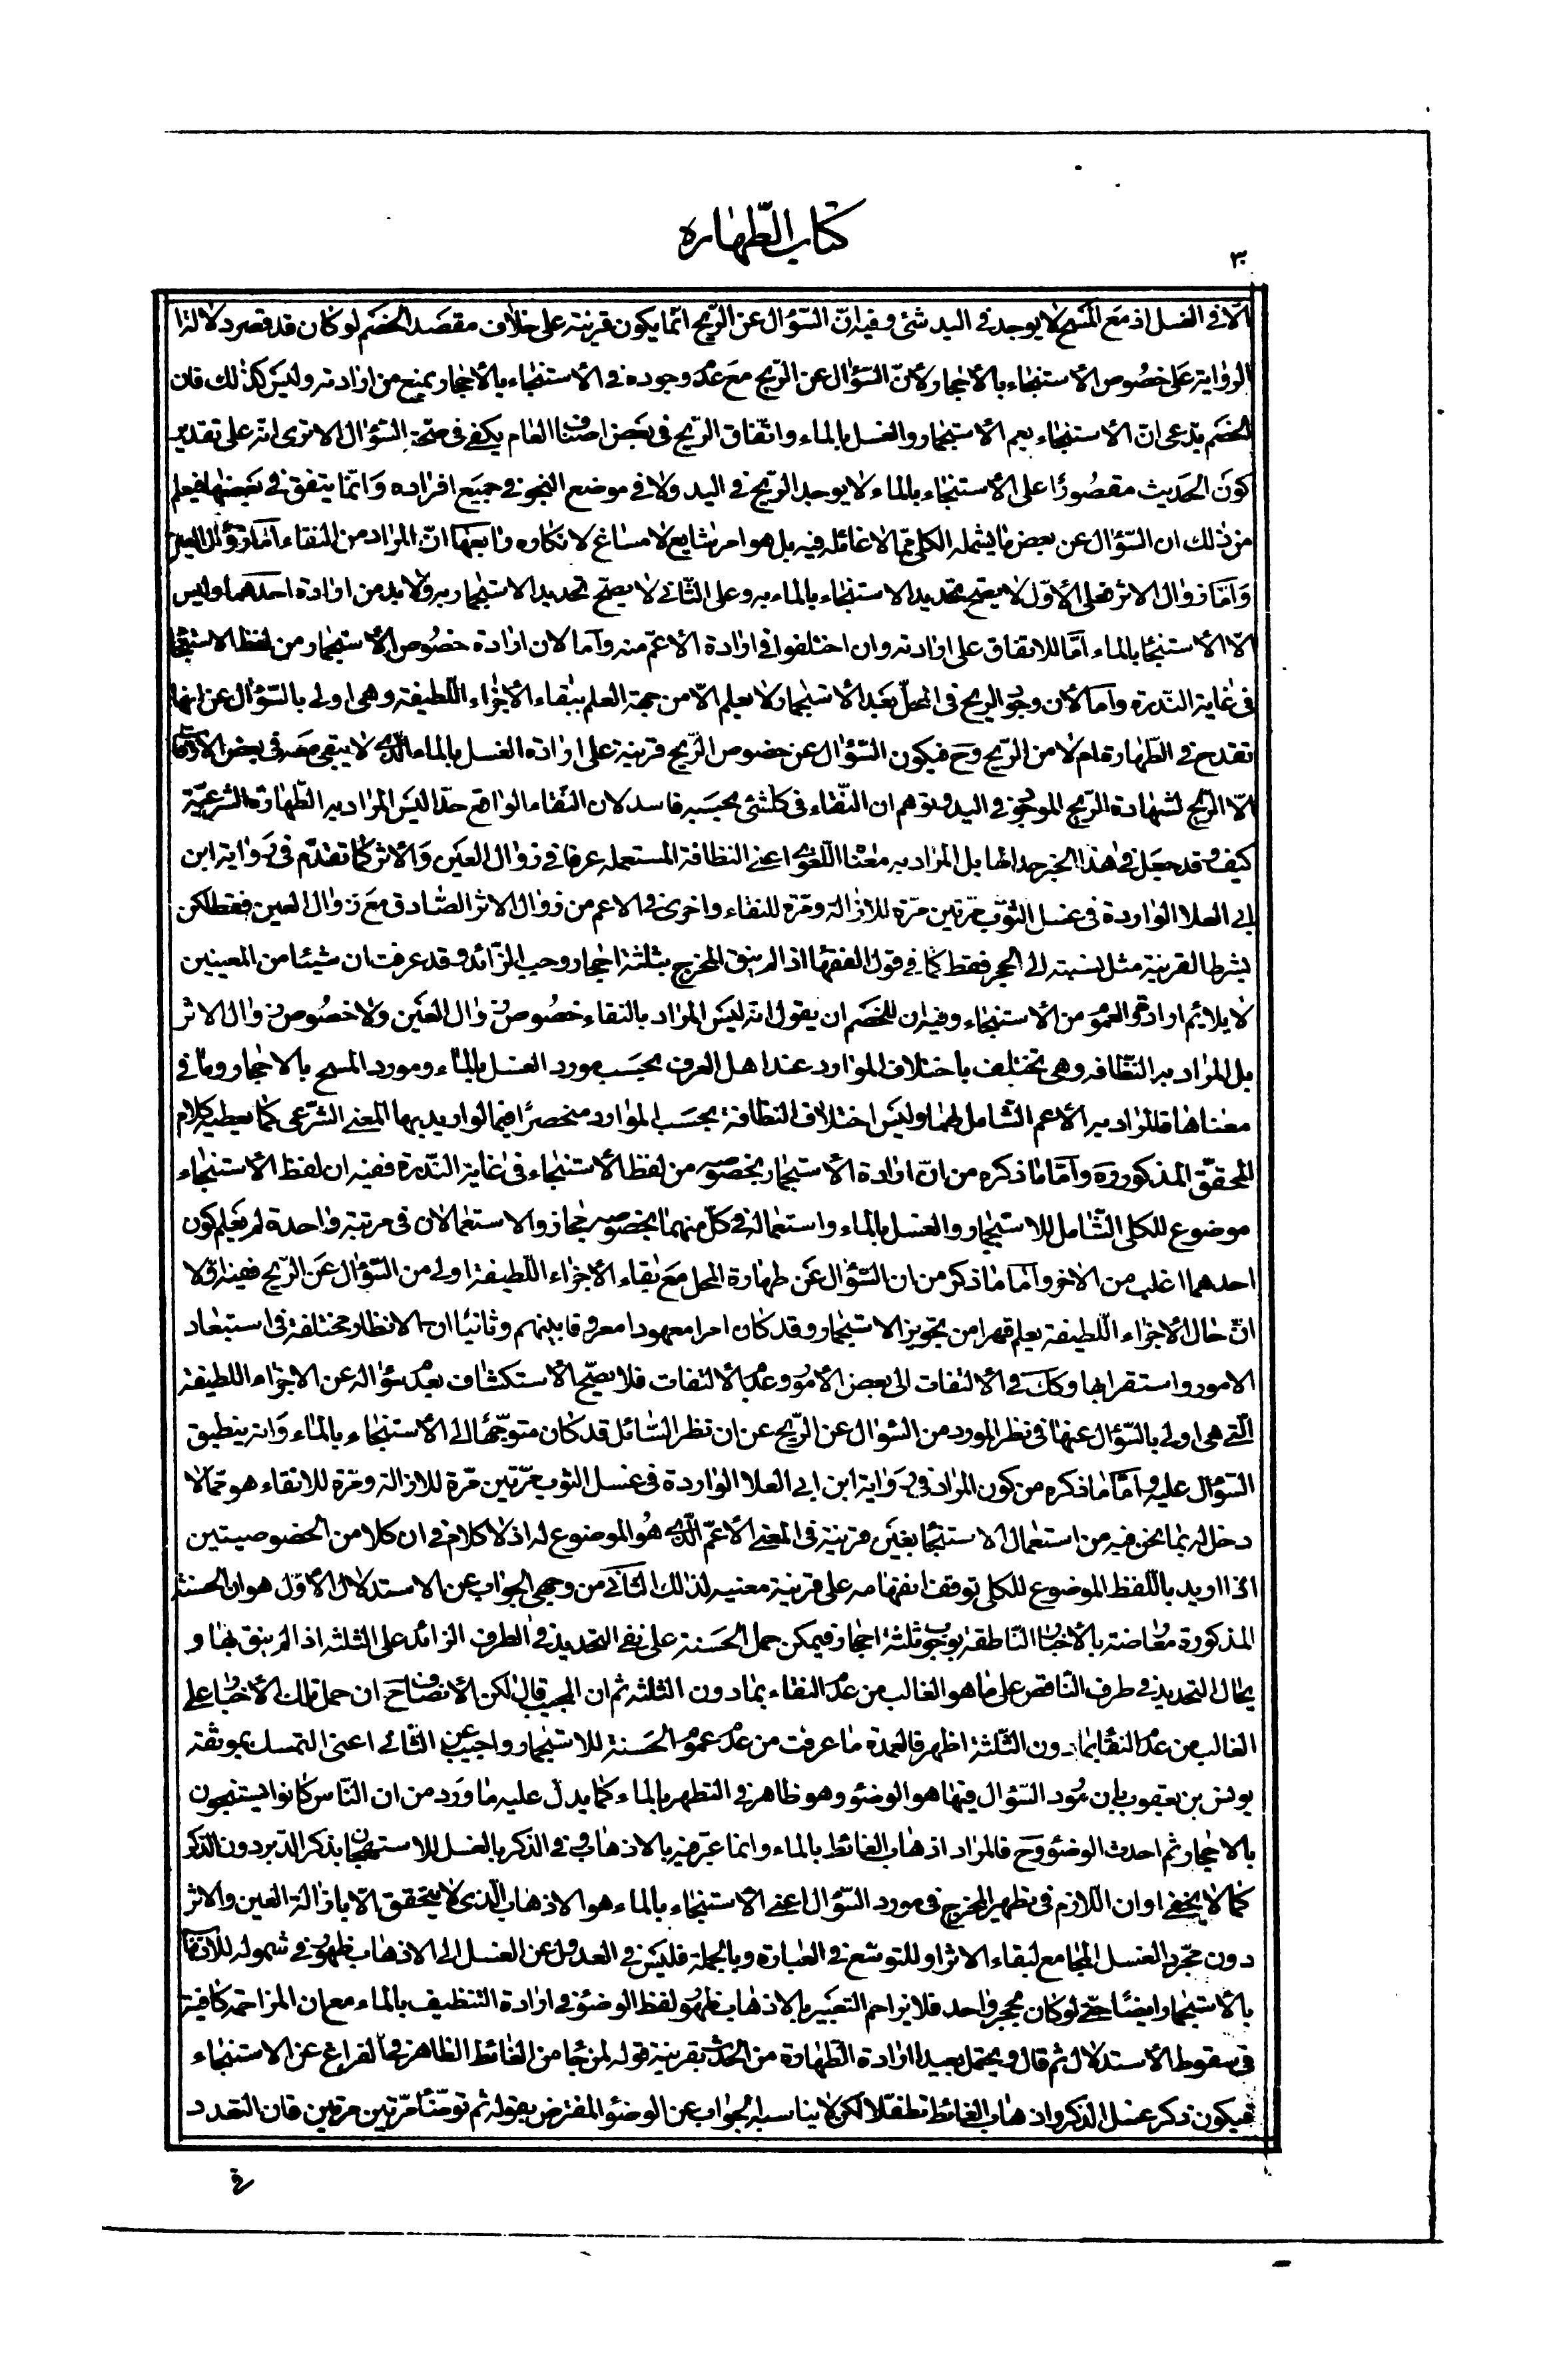 كتاب الطّهاره
٣٠
الّا فى الغسل اذ مع المسح لا يوجد فى اليد شئ وفيه انّ السّؤال عن الرّيح انّما يكون قرينة على خلاف مقصد الخصم لو كان قد قصر دلالة
الرواية على خصوص الأستنجاء بالأحجار لأنّ السّؤال عن الرّيح مع عدم وجوده فى الأستنجاء بالأحجار يمنع من ارادته وليس كذلك فان
الخصم يدّعى انّ الأستنجاء يعم الأستجمار والغسل بالماء واتّفاق الرّيح فى بعض اصناف العام يكفى فى صحّة السّؤال الا ترى انّه على تقدير
كون الحديث مقصورًا على الأستنجاء بالماء لا يوجد الرّيح فى اليد ولا فى موضع النجو فى جميع افراده وانّما يتفق فى بعضها فيعلم
من ذلك ان السّؤال عن بعض ما يشمله الكلى ممّا لا غائلة فيه بل هو امر شايع لا مساغ لانكاره رابعها انّ المراد من النقاء امّا زوال العين
وامّا زوال الاثر فعلى الأوّل لا يصحّ تحديد الاستنجاء بالماء به وعلى الثّانى لا يصحّ تحديد الاستجمار به ولا بد من ارادة احدهما وليس
الّا الأستنجاء بالماء امّا للاتفاق على ارادته وان اختلفوا فى ارادة الأعمّ منه وامّا لان ارادة خصوص الأستجمار من لفظ الاستنجاء
فى غاية النّدرة وامّا لأن وجود الريح فى المحلّ بعد الأستجمار لا يعلم الّا من جهة العلم ببقاء الأجزاء اللّطيفة وهى اولى بالسّؤال عن انها
تقدح فى الطّهارة ام لا من الرّيح وح فيكون السّؤال عن خصوص الرّيح قرينة على ارادة الغسل بالماء الّذى لا يبقى معه فى بعض الاوقات
الّا الرّيح لشهادة الرّيح الموجود فى اليد وتوهم ان النّقاء فى كلّشئ بحسبه فاسد لان النّقاء الواقع حدّا ليس المراد به الطّهارة الشّرعيّة
كيف وقد جعل فى هذا الخبر حدا لها بل المراد به معناه اللّغوى اعنى النظافة المستعملة عرفا فى زوال العين والاثر كما تقدّم فى رواية ابن
ابى العلا الواردة فى غسل الثّوب مرّتين مرّة للازالة ومرّة للنقاء واخرى فى الاعم من زوال الاثر الصّادق مع زوال العين فقط لكن
بشرط القرينة مثل نسبته الى الحجر فقط كما فى قول الفقهاء اذا لم ينق المخرج بثلثة احجار وجب الزّائد وقد عرفت ان شيئا من المعينين
لا يلائم ارادة العموم من الأستنجاء وفيه ان للخصم ان يقول انه ليس المراد بالنقاء خصوص زوال العين ولا خصوص زوال الاثر
بل المراد به النّظافه وهى تختلف باختلاف الموارد عند اهل العرف بحسب مورد الغسل بالماء ومورد المسح بالاحجار وما فى
معناها فالمراد به الأعم الشّامل لهما وليس اختلاف النظافة بحسب الموارد منحصرًا فيما لو اريد بها المعنى الشّرعى كما يعطيه كلام
المحقّق المذكور ره وامّا ما ذكره من انّ ارادة الأستجمار بخصوصه من لفظ الأستنجاء فى غاية النّدرة ففيه ان لفظ الأستنجاء
موضوع للكلى الشّامل للاستجمار والغسل بالماء واستعماله فى كلّ منهما بخصوصه مجاز والاستعمالان فى مرتبة واحدة لم يعلم كون
احدهما اغلب من الأخر وامّا ما ذكر من ان السّؤال عن طهارة المحل مع بقاء الأجزاء اللّطيفة اولى من السّؤال عن الرّيح ففيه اوّلا
انّ حال الأجزاء اللّطيفة يعلم قهرا من تجويز الاستجمار وقد كان امرا معهودا معروفا بينهم وثانيا ان الانظار مختلفة فى استبعاد
الامور واستقرابها وكك فى الألتفات الى بعض الأمور وعدم الألتفات فلا يصحّ الأستكشاف بعدم سؤاله عن الاجزاء اللطيفة
الّتى هى اولى بالسّؤال عنها فى نظر المورد من السّؤال عن الرّيح عن ان نظر السّائل قد كان متوجّها الى الأستنجاء بالماء وانه ينطبق
السّؤال عليه وامّا ما ذكره من كون المراد فى رواية ابن ابى العلا الواردة فى غسل الثوب مرّتين مرّة للازالة ومرّة للانقاء هو ممّا لا
دخل له بما نحن فيه من استعمال الاستنجاء بغير قرينة فى المعنى الأعمّ الّذى هو الموضوع له اذ لا كلام فى ان كلا من الخصوصيتين
اذا اريد باللّفظ الموضوع للكلى توقف انفهامه على قرينة معينه لذلك الثّانى من وجهى الجواب عن الاستدلال الأوّل هو ان الحسنة
المذكورة معارضة بالأخبار النّاطقة بوجوب ثلثة احجار فيمكن حمل الحسنة على نفى التحديد فى الطرف الزائد على الثلثه اذا لم ينق بها و
يحال التحديد فى طرف النّاقص على ما هو الغالب من عدم النقاء بما دون الثلثه ثم ان المجيب قال لكن الأنصاف ح ان حمل تلك الأخبار على
الغالب من عدم النقاء بما دون الثّلثة اظهر فالعمدة ما عرفت من عدم عموم الحسنة للاستجمار واجيب عن الثّانى اعنى التمسك بموثقة
يونس بن يعقوب بان مورد السّؤال فيها هو الوضوء وهو ظاهر فى التطهر بالماء كما يدلّ عليه ما ورد من ان النّاس كانوا يستنجون
بالاحجار ثم احدث الوضوء وح فالمراد اذهاب الغائط بالماء وانما عبّر فيه بالاذهاب وفى الذكر بالغسل للاستهجان بذكر الدّبر دون الذّكر
كما لا يخفى او ان اللّازم فى تطهير المخرج فى مورد السّؤال اعنى الأستنجاء بالماء هو الاذهاب الّذى لا يتحقق الّا بازالة العين والاثر
دون مجرّد الغسل المجامع لبقاء الاثر او للتوسّع فى العبارة وبالجملة فليس فى العدول عن الغسل الى الاذهاب ظهور فى شموله للانقاء
بالأستجمار ايضا حتّى لو كان بحجر واحد فلا يزاحم التعبير بالاذهاب ظهور لفظ الوضوء فى ارادة التنظيف بالماء مع ان المزاحمة كافية
فى سقوط الأستدلال ثم قال ويحتمل بعيدا ارادة الطّهارة من الحدث بقرينة قوله لمن جاء من الغائط الظاهر فى الفراغ عن الاستنجاء
فيكون ذكر غسل الذكر واذهاب الغائط تطفّلا لكن لا يناسبه الجواب عن الوضوء المفترض بقوله ثم توضّأ مرّتين مرتين فان التعدد
فى